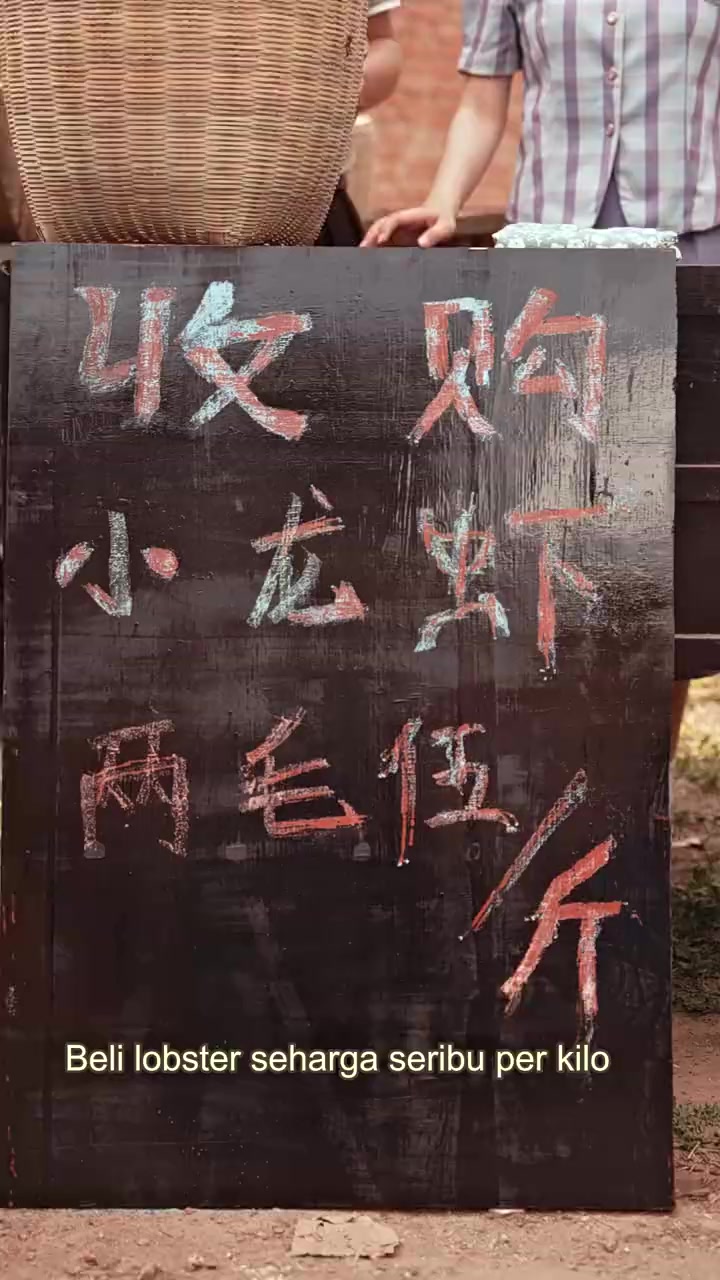 收购
小龙虾
两毛伍/斤
Beli lobster seharga seribu per kilo